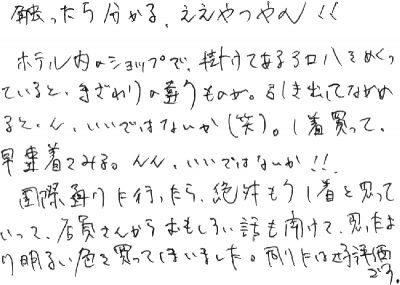 触ったら分かる、ええやつやん!!
ホテル内のショップで、掛けてあるアロハをめくっ
ていると、手ざわりの違うものが。引き出してながめ
ると、ん、いいではないか(笑)。1着買って、
早速着てみる。んん、いいではないか!!
国際通りに行ったら、絶対もう1着と思って
いって、店員さんからおもしろい話も聞けて、思ったよ
り明るい色を買ってしまいました。周りには好評価
です。